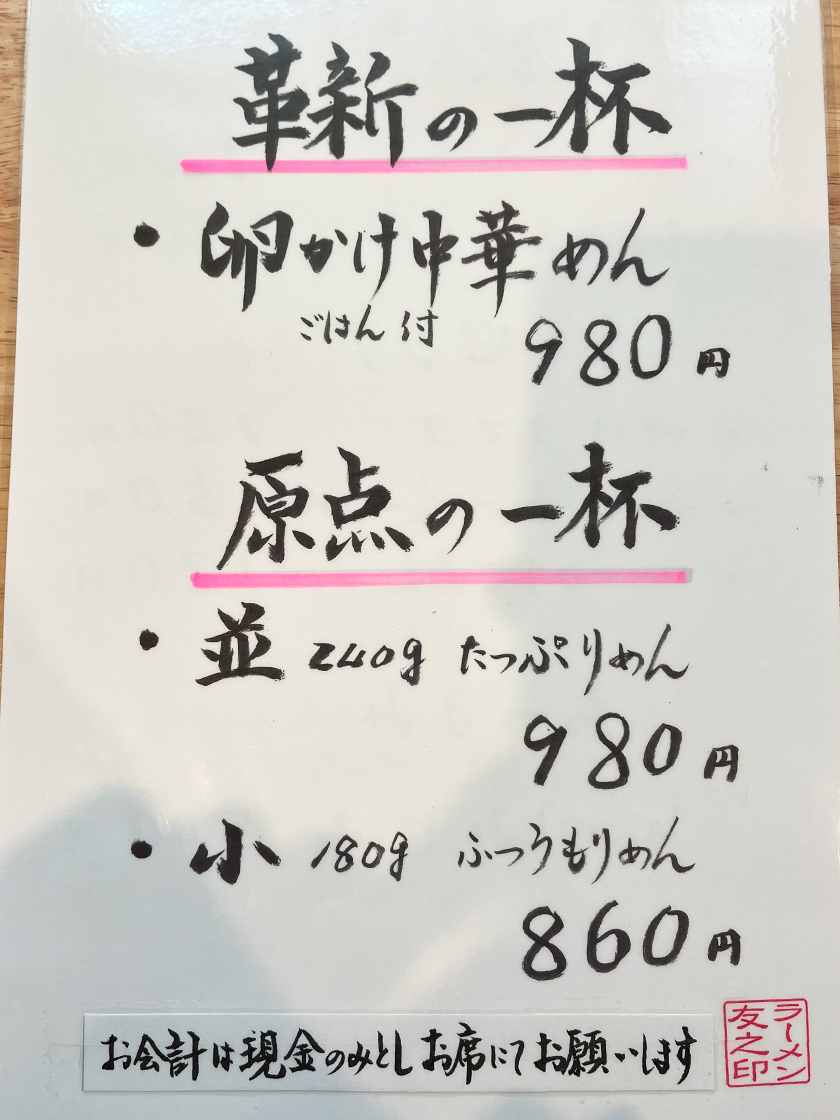 革新の一杯
・卵かけ中華めん
ごはん付 980円
原点の一杯
・並 240g たっぷりめん
980円
・小 180g ふつうもりめん
860円
お会計は現金のみとしお席にてお願いします
ラーメン
友之印